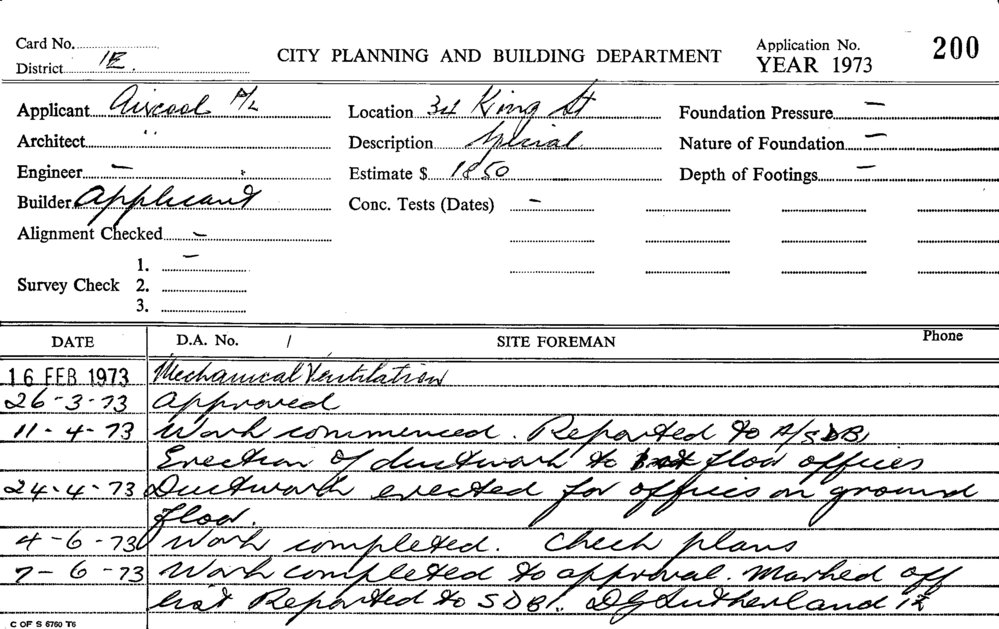 Card No.
District 1E.
CITY PLANNING AND BUILDING DEPARTMENT
Application No. 200
YEAR 1973
Applicant Aircool P/L
Location 34 King St
Foundation Pressure –
Architect "
Description Special
Nature of Foundation –
Engineer –
Estimate $ 1850
Depth of Footings –
Builder Applicant
Conc. Tests (Dates) –
Alignment Checked –
Survey Check 1. –
2.
3.
DATE D.A. No. / SITE FOREMAN Phone
16 FEB 1973 Mechanical Ventilation
26-3-73 Approved
11-4-73 Work commenced. Reported to A/SDB
Erection of ductwork to floor offices
24-4-73 Ductwork erected for offices on ground
floor.
4-6-73 Work completed. Check plans
7-6-73 Work completed to approval. Marked off
list Reported to SDB. DG Sutherland 1E
C OF S 6760 T6